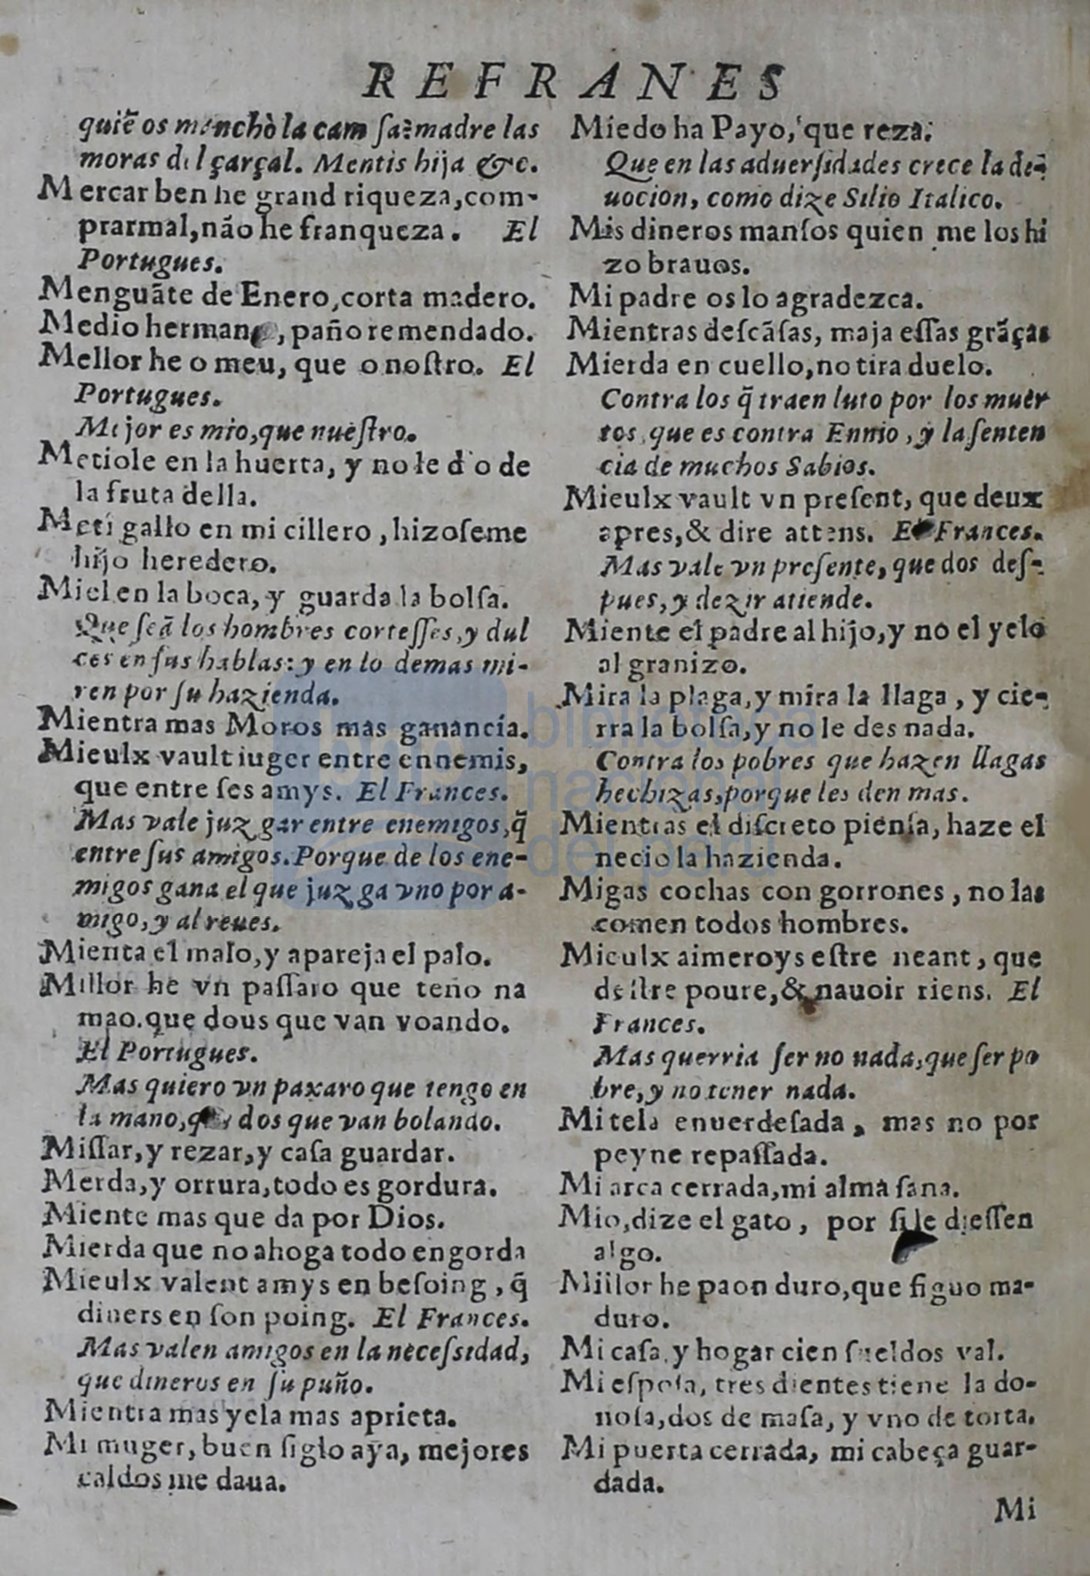 REFRANES
quiẽ os manchò la cam ſa? madre las
moras del çarçal. Mentis hija &c.
Mercar ben he grand riqueza, com-
prar mal, não he franqueza. El
Portugues.
Menguãte de Enero, corta madero.
Medio herman, paño remendado.
Mellor he o meu, que o noſtro. El
Portugues.
Mejor es mio, que nueſtro.
Metiole en la huerta, y no le dio de
la fruta della.
Metí gallo en mi cillero, hizoſeme
hijo heredero.
Miel en la boca, y guarda la bolſa.
Que ſeã los hombres corteſſes, y dul
ces en ſus hablas: y en lo demas mi-
ren por ſu hazienda.
Mientra mas Moros mas ganancia.
Mieulx vault iuger entre ennemis,
que entre ſes amys. El Frances.
Mas vale juzgar entre enemigos, q̃
entre ſus amigos. Porque de los ene-
migos gana el que juzga vno por a-
migo, y al reues.
Mienta el malo, y apareja el palo.
Millor he vn paſſaro que teño na
mao. que dous que van voando.
El Portugues.
Mas quiero vn paxaro que tengo en
la mano, que dos que van bolando.
Miſſar, y rezar, y caſa guardar.
Merda, y orrura, todo es gordura.
Miente mas que da por Dios.
Mierda que no ahoga todo engorda
Mieulx valent amys en beſoing, q̃
diners en ſon poing. El Frances.
Mas valen amigos en la neceſsidad,
que dineros en ſu puño.
Mientra mas yela mas aprieta.
Mi muger, buen ſiglo aya, mejores
caldos me daua.
Miedo ha Payo, que reza.
Que en las aduerſidades crece la de-
uocion, como dize Silio Italico.
Mis dineros manſos quien me los hi
zo brauos.
Mi padre os lo agradezca.
Mientras deſcãſas, maja eſſas grãças
Mierda en cuello, no tira duelo.
Contra los q̃ traen luto por los muer
tos, que es contra Ennio, y la ſenten
cia de muchos Sabios.
Mieulx vault vn preſent, que deux
apres, & dire attens. El Frances.
Mas vale vn preſente, que dos deſ-
pues, y dezir atiende.
Miente el padre al hijo, y no el yelo
al granizo.
Mira la plaga, y mira la llaga, y cie-
rra la bolſa, y no le des nada.
Contra los pobres que hazen llagas
hechizas, porque les den mas.
Mientras el diſcreto pienſa, haze el
necio la hazienda.
Migas cochas con gorrones, no las
comen todos hombres.
Mieulx aimeroys eſtre neant, que
deſtre poure, & nauoir riens. El
Frances.
Mas querria ſer no nada, que ſer po
bre, y no tener nada.
Mi tela enuerdeſada, mas no por
peyne repaſſada.
Mi arca cerrada, mi alma ſana.
Mio, dize el gato, por ſi le dieſſen
algo.
Millor he paon duro, que figuo ma-
duro.
Mi caſa, y hogar cien ſueldos val.
Mi eſpoſa, tres dientes tiene la do-
noſa, dos de maſa, y vno de torta.
Mi puerta cerrada, mi cabeça guar-
dada.
Mi
biblioteca
nacional
del perú